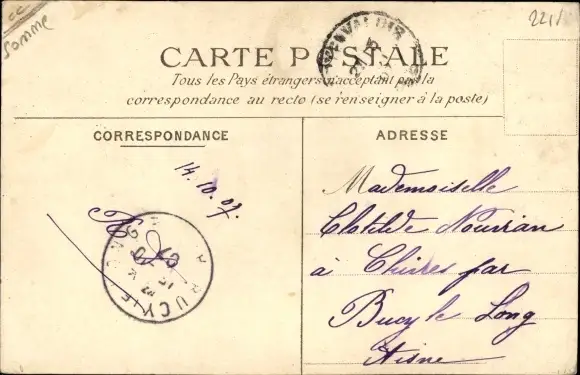 Somme
221
CARTE POSTALE
Tous les Pays étrangers n'acceptant pas la
correspondance au recto (se renseigner à la poste)
CORRESPONDANCE
14.10.07.
BUCY-LE
ADRESSE
Mademoiselle
Clotilde Nouvian
à Chivres par
Bucy le Long
Aisne